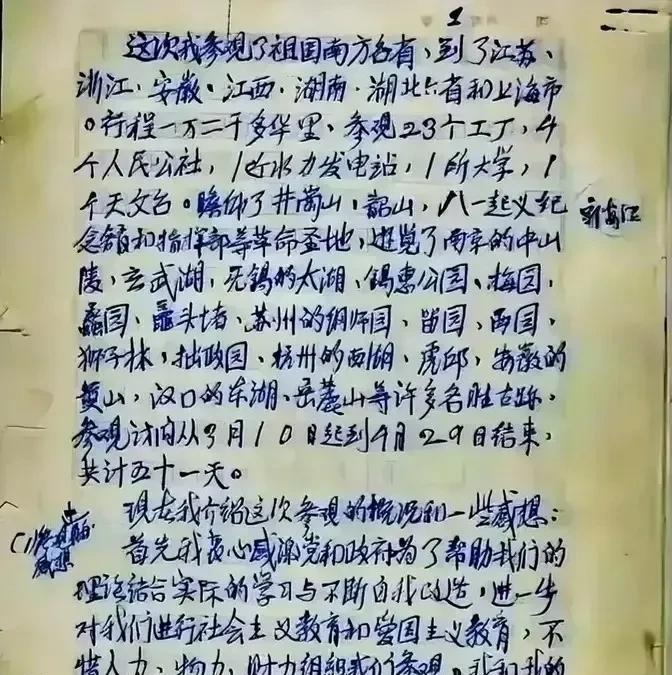 1
这次我参观了祖国南方各省、到了江苏、
浙江、安徽、江西、湖南、湖北六省和上海市
。行程一万二千多华里、参观23个工厂，4
个人民公社，1处水力发电站，1所大学，1
个天文台。瞻仰了井岗山、韶山，八一起义纪
念馆和指挥部等革命圣地，遊览了南京的中山
陵，玄武湖，无锡的太湖、锡惠公园、梅园、
蠡园、鼋头堵、苏州的网师园、留园、西园、
狮子林，拙政园、杭州的西湖、虎邱，安徽的
黄山，汉口的东湖、岳麓山等许多名胜古跡。
参观计自从3月10日起到4月29日结束，
共计五十一天。
现在我介绍这次参观的概况和一些感想：
(1)
感想
首先我衷心感激党和政府为了帮助我们的
理论结合实际的学习与不断自我改造，进一步
对我们进行社会主义教育和爱国主义教育，不
惜人力、物力、财力组织我们参观。我和我的